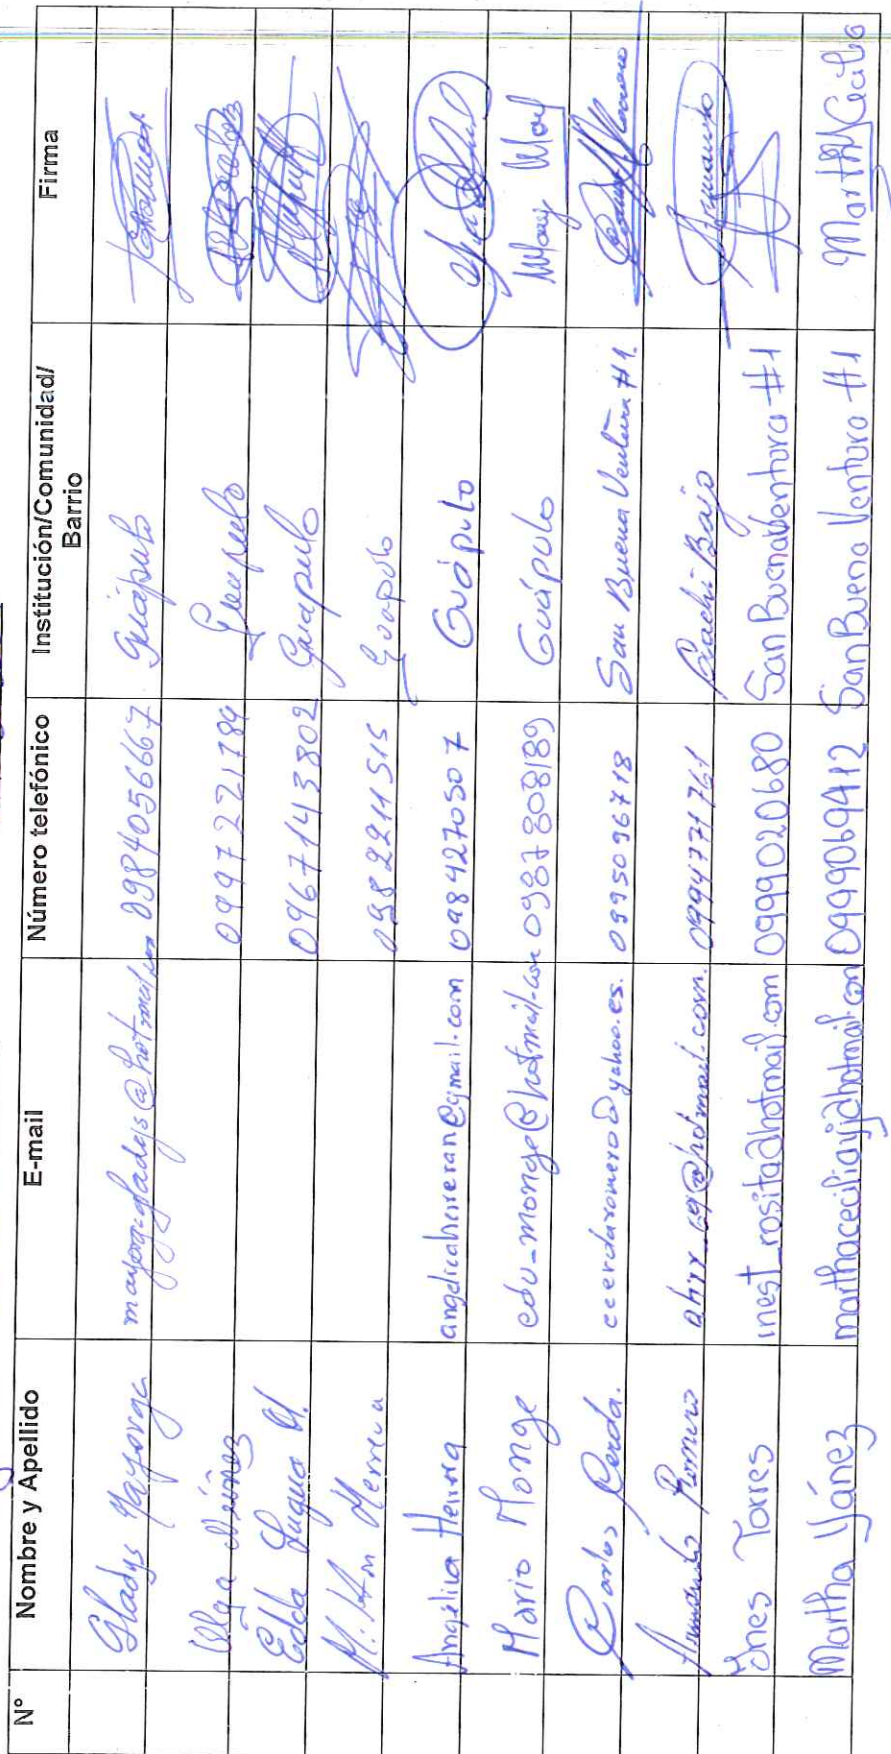 N° Nombre y Apellido E-mail Número telefónico Institución/Comunidad/ Barrio Firma
Gladys Mayorga mayorga-gladys@hotmail.com 0984056667 Guápulo
Olga Núñez 0997221784 Guapulo
Edda Luque M. 0967143802 Guapulo
Milton Herrera 0982211515 Guapulo
Angélica Herrera angelicaherreran@gmail.com 0984270507 Guápulo
Mario Monge edu_monge@hotmail.com 0987808189 Guápulo Mary Moy
Carlos Cerda. ccerdaromero@yahoo.es. 0995096718 San Buena Ventura #1.
Armando Romero ahrr_69@hotmail.com. 0994771761 Bajo Armando
Ines Torres inest_rosita@hotmail.com 0999020680 San Buenabentura #1
Martha Yánez marthaceciliayj@hotmail.com 0999069412 San Buena Ventura #1 Martha Cecilia